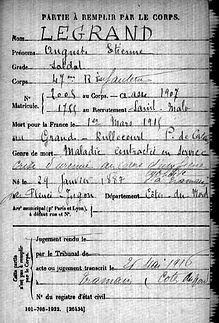 PARTIE À REMPLIR PAR LE CORPS.
Nom LEGRAND
Prénoms Auguste Etienne
Grade Soldat
Corps 47me R. d'Infanterie
N° 2005 au Corps. — Classe 1907
Matricule. 1755 au Recrutement Saint-Malo
Mort pour la France le 1er Mars 1916
au Grand Rullecourt P. de Calais
Genre de mort Maladie contractée en service
Crise d'urémie au cours d'une
Né le 29 janvier 1887
Plénée-Jugon Département Côtes du Nord
Arr' municipal (p' Paris et Lyon),
à défaut rue et N°.
Cette partie n'est pas à remplir par le Corps.
Jugement rendu le
par le Tribunal de
acte ou jugement transcrit le 21 Mai 1916
à Tramain, Côtes du Nord
N° du registre d'état civil
101-708-1922. [26434]